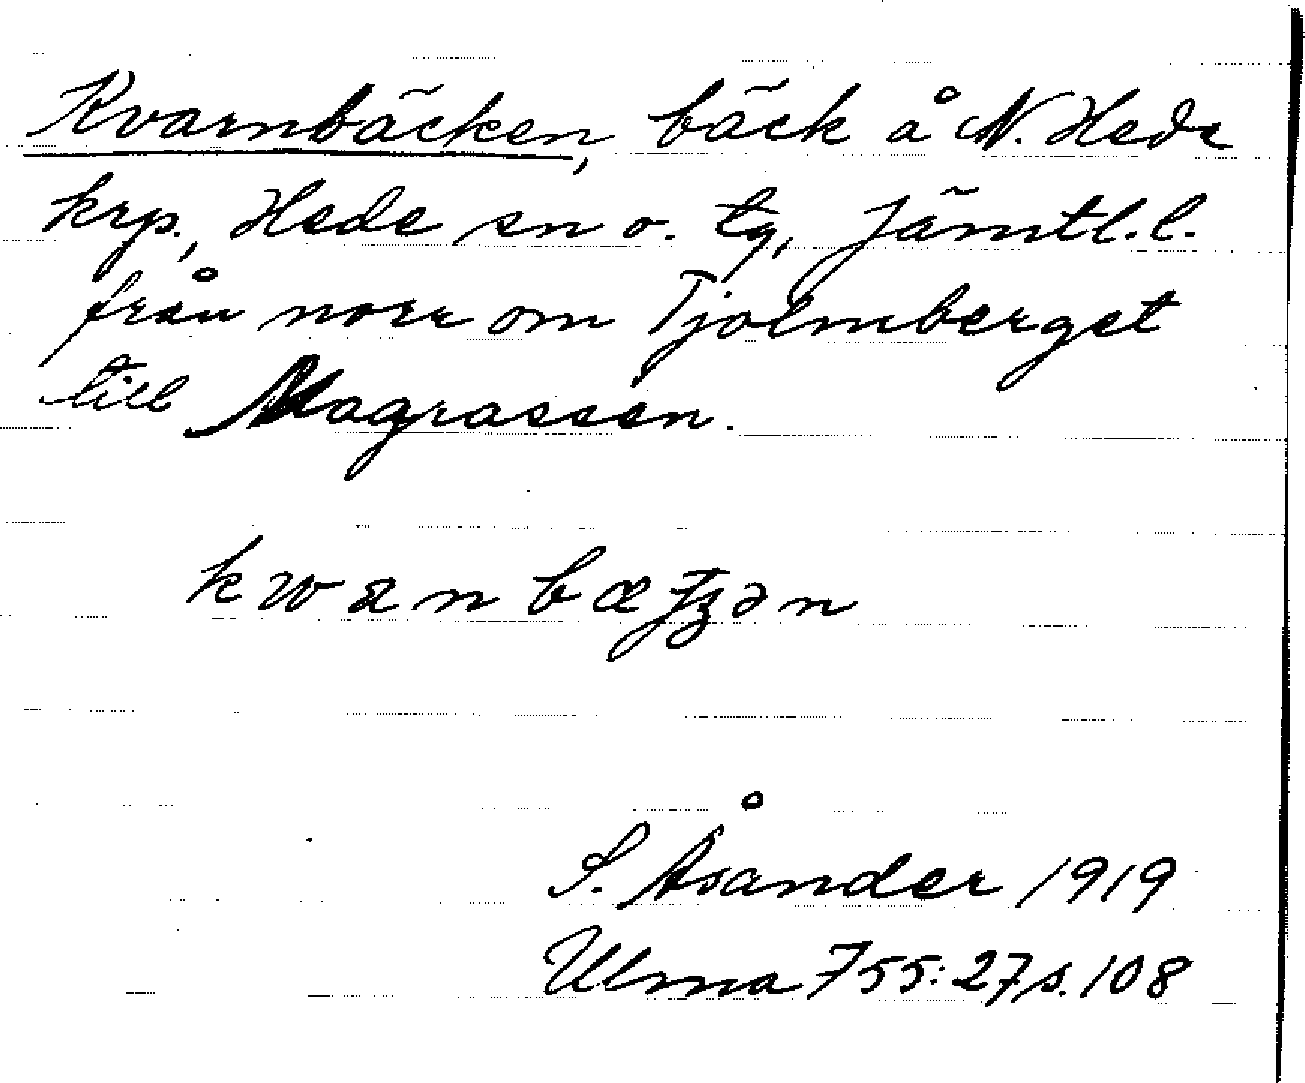 Kvarnbäcken, bäck å N. Hede
krp., Hede sn o. tg, Jämtl.l.
från norr om Tjolmberget
till Magrassen.
S. Åsander 1919
Ulma 755:27 s. 108